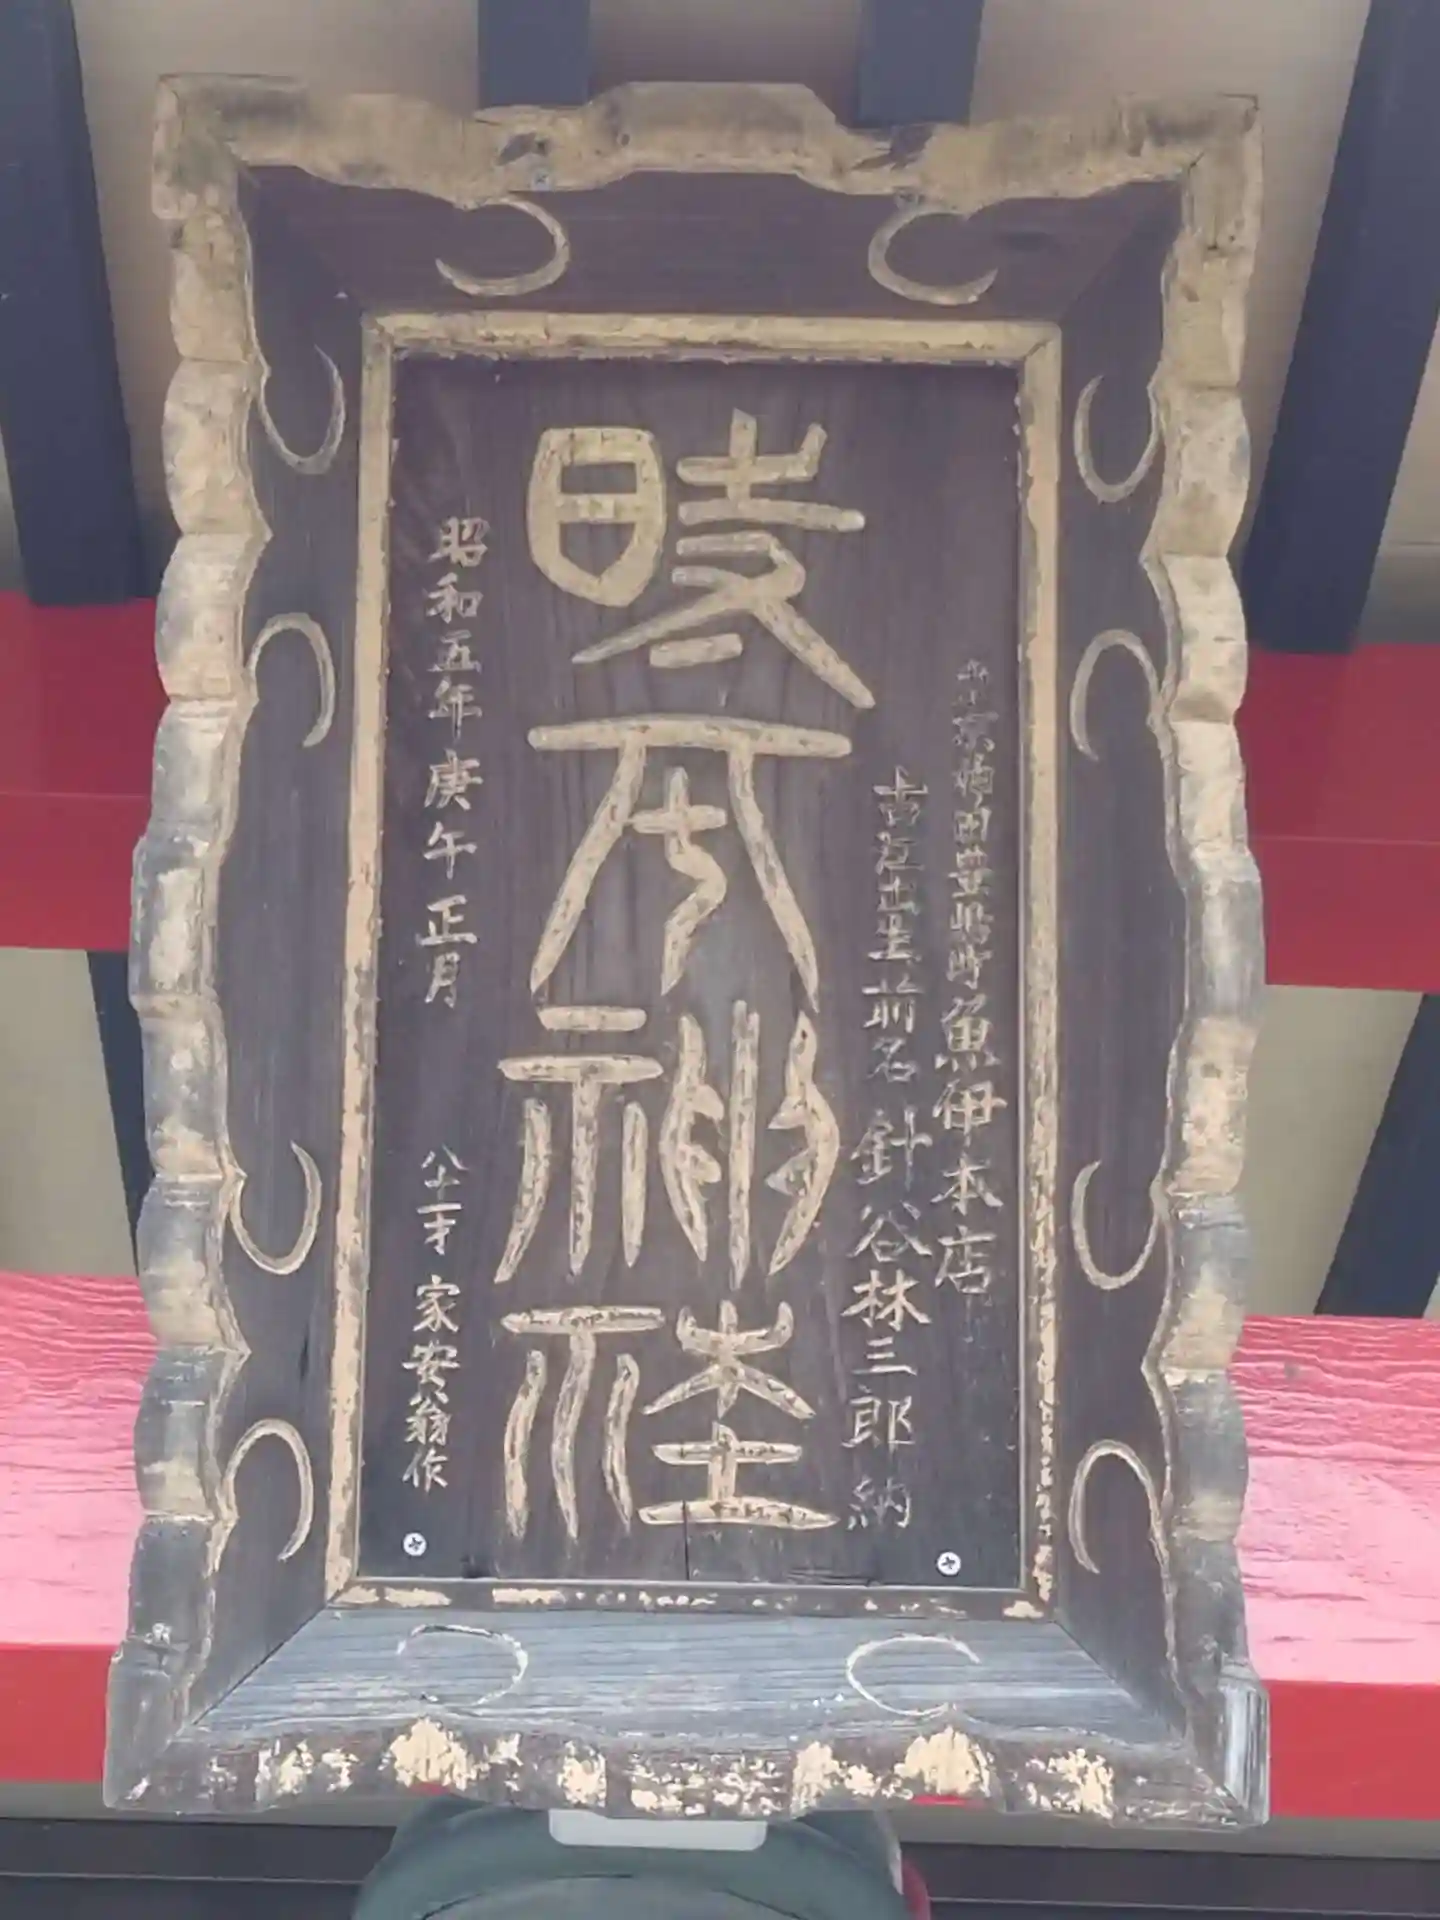 東京神田豊嶋町 魚伊本店
出生 前名 針谷林三郎 納
時平神社
昭和五年庚午正月 八十一才 家安翁作